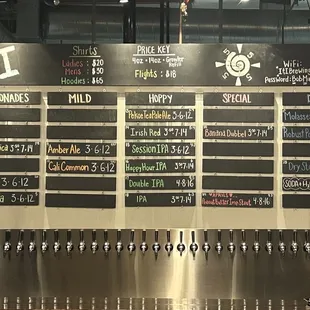 I
Shirts
Ladies $20
Mens $50
Hoodies $65
PRICE KEY
4oz - 14oz - Growler
Refill
Flights : $18
WiFi:
"ItIBrewing
Password:"BobMa
ONADES
MILD
HOPPY
SPECIAL
Pekoe Tea Pale Ale 3·6·12
Molasses
Irish Red 3·7·14
Banana Dubbel 3·7·14
Robust
3·6·12
Amber Ale 3·6·12
Session IPA 3·7·14
Dry S
Cali Common 3·6·12
Happy Hour IPA 3·7·14
3·6·12
Double IPA 4·8·16
SODA
3·6·12
IPA 3·7·14
4·8·16